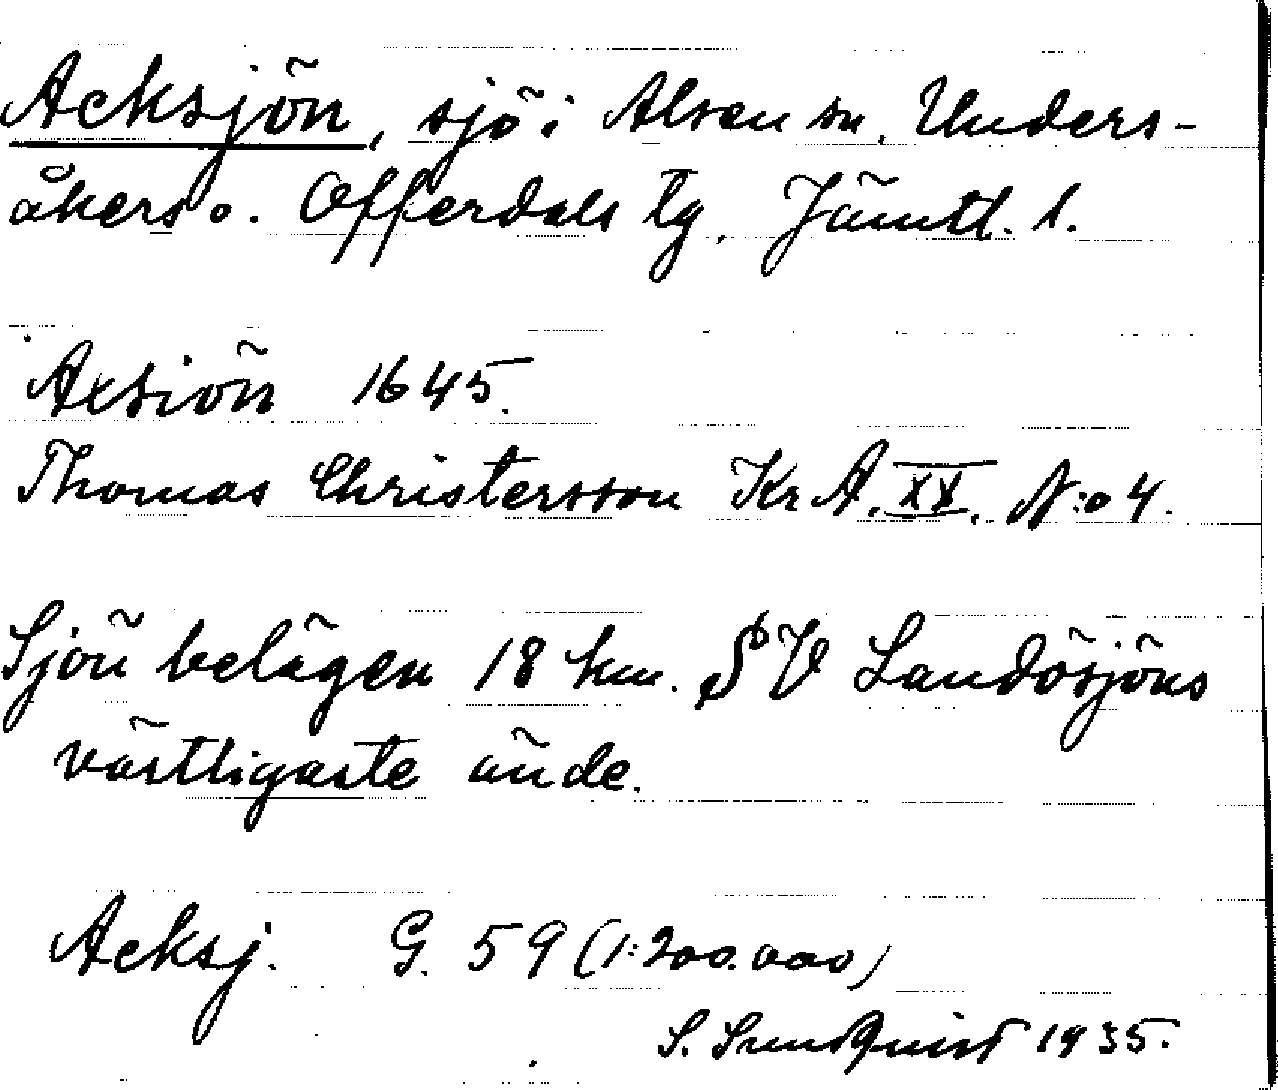 Acksjön, sjö i Alsen sn, Unders-
åkers o. Offerdals tg, Jämtl. l.
Axsiön 1645.
Thomas Christersson Kr A. XX. N:o 4.
Sjön belägen 18 km. SV Landösjöns
västligaste ände.
Acksj. G. 59 (1:200.000)
S. Sundquist 1935.